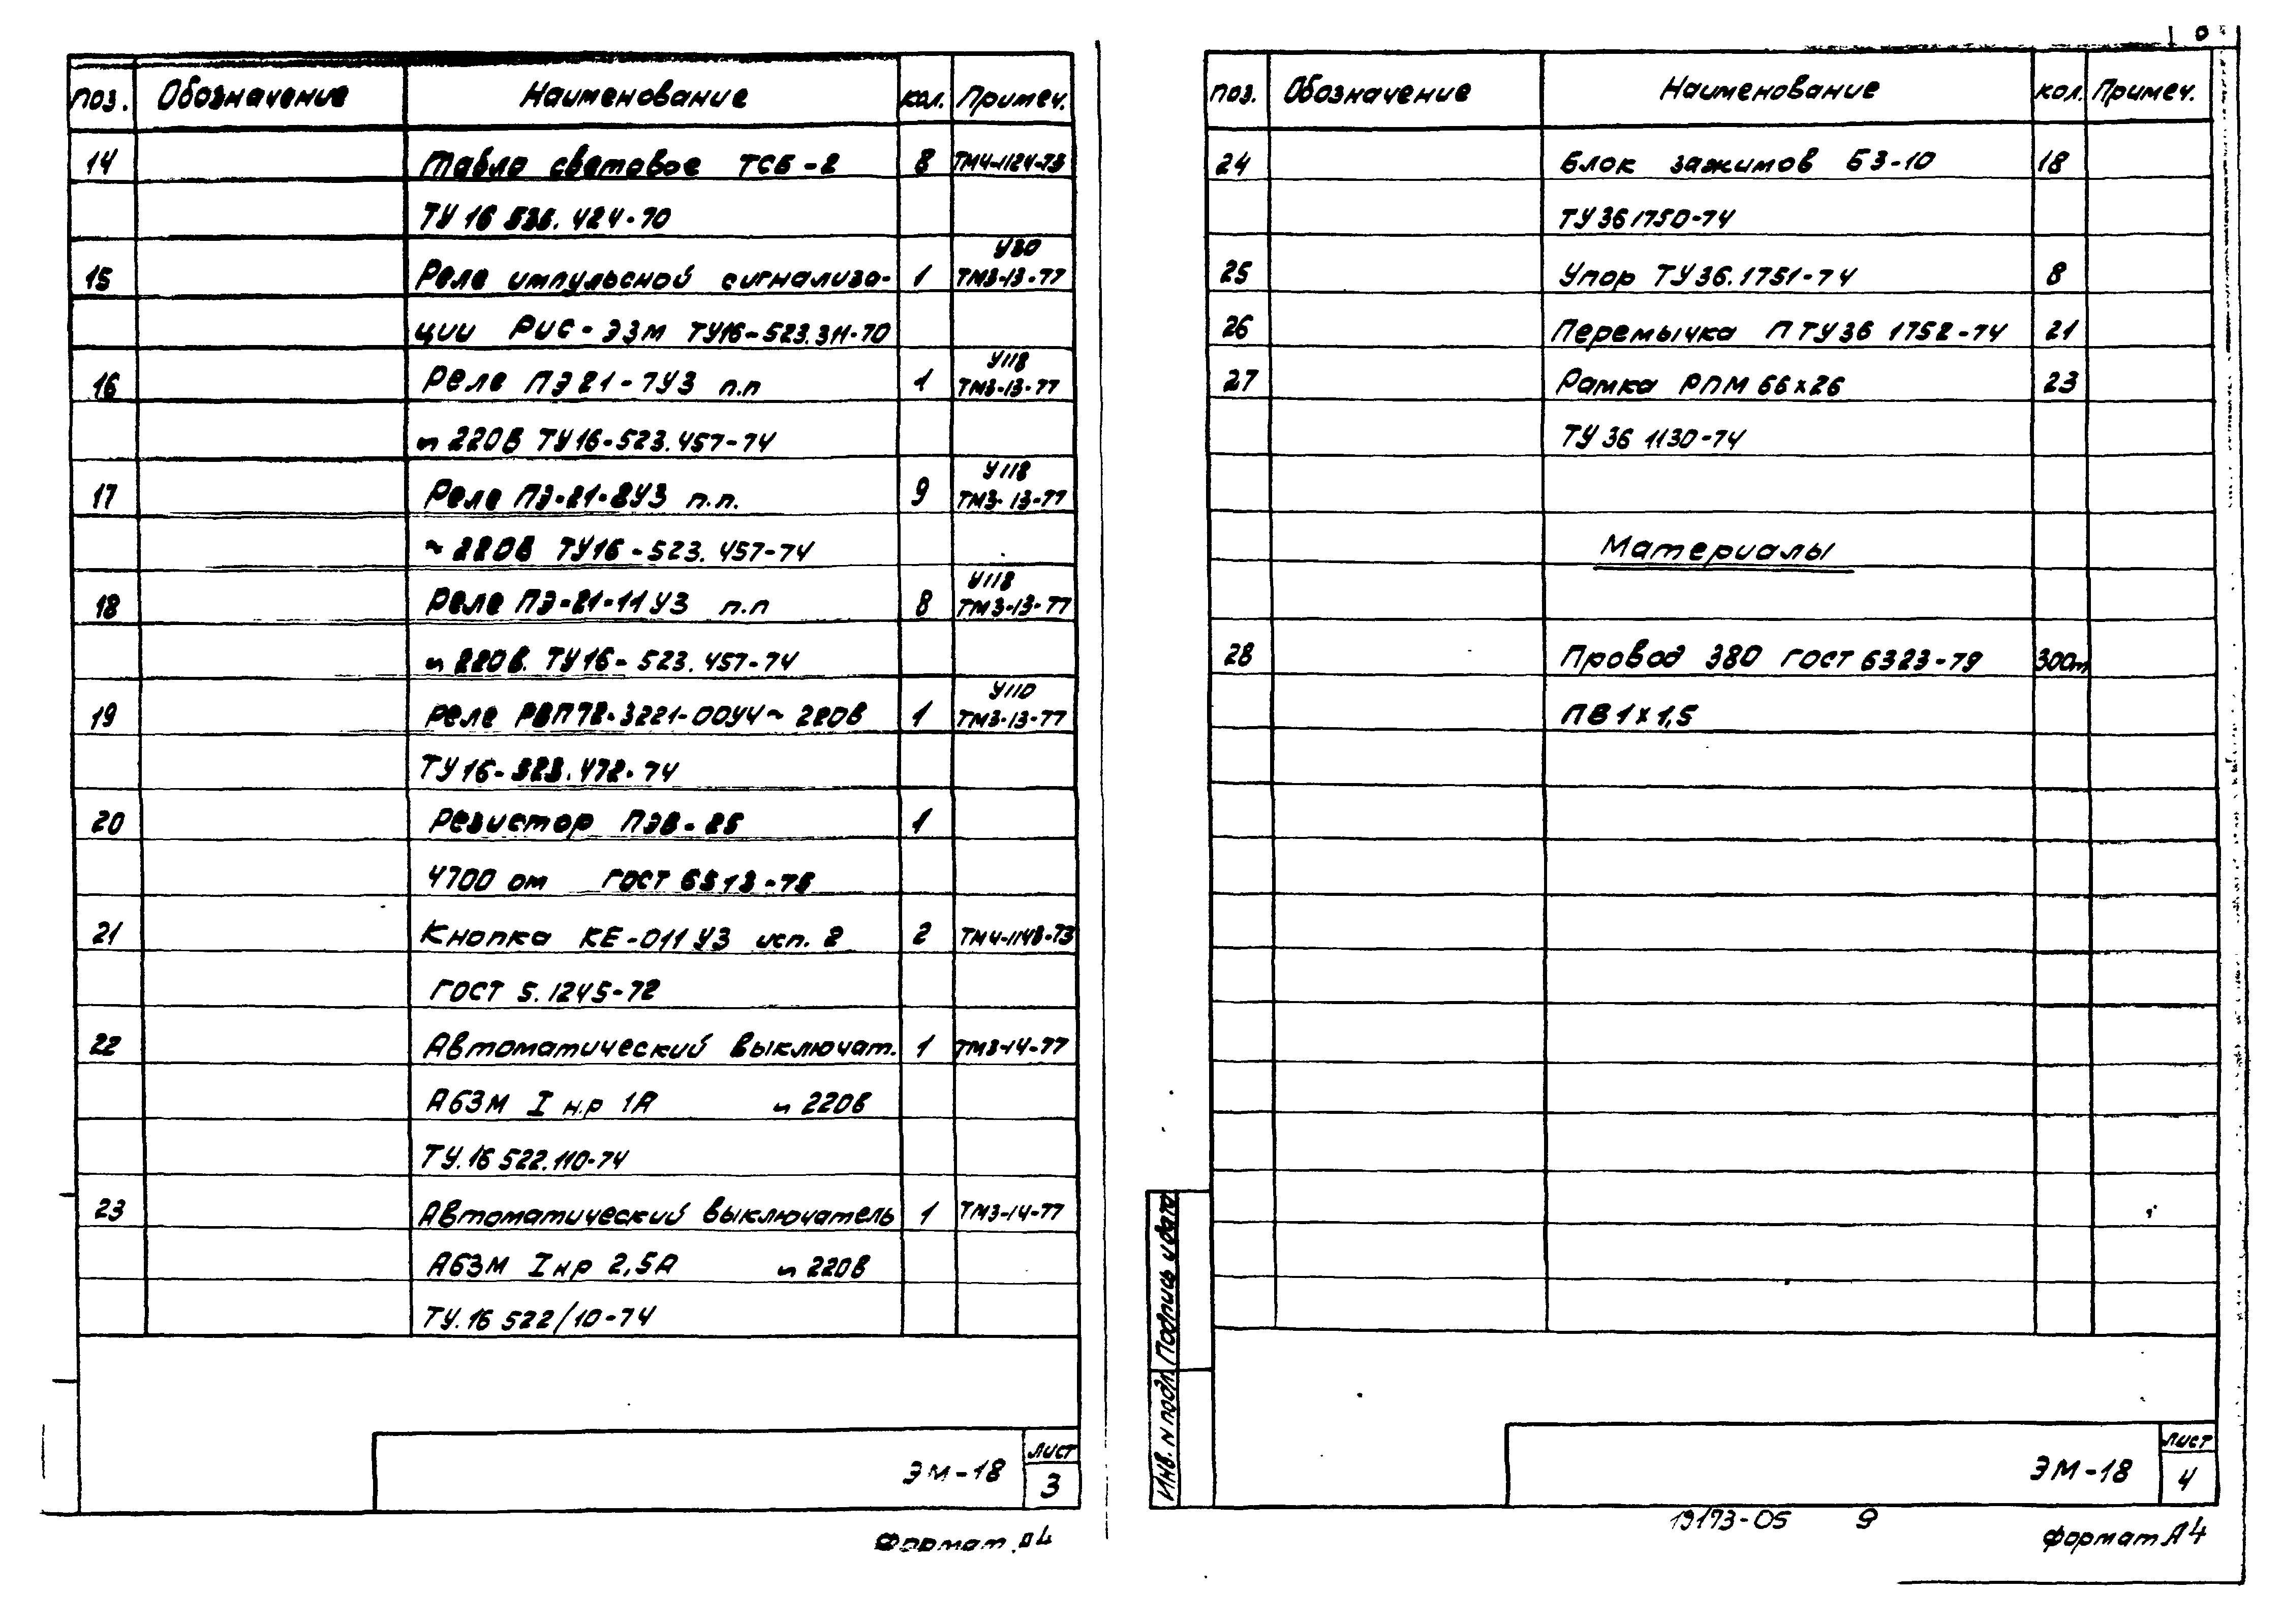 поз. Обозначение Наименование кол. Примеч.
14 Табло световое ТСБ-2 8 ТМ4-1124-73
ТУ 16 535. 424-70
У30
15 Реле импульсной сигнализа- 1 ТМ3-13-77
ции РИС-Э3М ТУ16-523.311-70
У118
16 Реле ПЭ21-7У3 п.п 1 ТМ3-13-77
~ 220В ТУ16-523.457-74
У118
17 Реле ПЭ-21-8У3 п.п. 9 ТМ3-13-77
~ 220В ТУ16-523.457-74
У118
18 Реле ПЭ-21-11У3 п.п 8 ТМ3-13-77
~ 220В. ТУ16-523.457-74
У110
19 Реле РВП72-3221-00У4~ 220В 1 ТМ3-13-77
ТУ16-523.472-74
20 Резистор ПЭВ-25 1
4700 ом ГОСТ 6513-75
21 Кнопка КЕ-011 У3 исп. 2 2 ТМ4-1148-73
ГОСТ 5.1245-72
22 Автоматический выключат. 1 ТМ3-14-77
А63М I н.р 1А ~ 220В
ТУ.16 522.110-74
23 Автоматический выключатель 1 ТМ3-14-77
А63М I нр 2,5А ~ 220В
ТУ.16 522/10-74
ЭМ-18
лист
3
Формат А4
поз. Обозначение Наименование кол. Примеч.
24 Блок зажимов БЗ-10 18
ТУ 36 1750-74
25 Упор ТУ 36.1751-74 8
26 Перемычка П ТУ 36 1752-74 21
27 Рамка РПМ 66х26 23
ТУ 36 1130-74
Материалы
28 Провод 380 ГОСТ 6323-79 300м
ПВ 1х1,5
Подпись и дата
Инв. N подл.
ЭМ-18
лист
4
19173-05 9
Формат А4